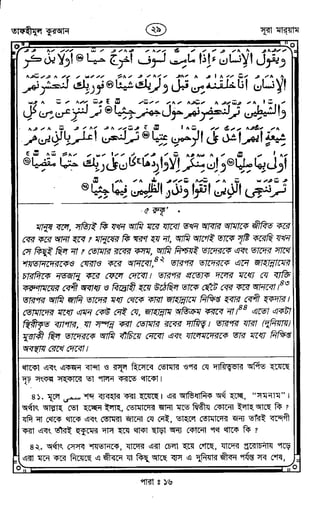 তাফহীমুল কুরআন
২৯
সূরা মারয়াম
وَيَقُولُ الْإِنْسَانُ ءَإِذَا مَا مِتُّ لَسَوْفَ أُخْرَجُ حَيًّا ۝ أَوَلَا يَذْكُرُ
الْإِنْسَانُ أَنَّا خَلَقْنَهُ مِنْ قَبْلُ وَلَمْ يَكُ شَيْئًا ۝ فَوَرَبِّكَ لَنَحْشُرَنَّهُمْ
وَالشَّيٰطِينَ ثُمَّ لَنُحْضِرَنَّهُمْ حَوْلَ جَهَنَّمَ جِثِيًّا ۝ ثُمَّ لَنَنْزِعَنَّ مِنْ كُلِّ
شِيعَةٍ أَيُّهُمْ أَشَدُّ عَلَى الرَّحْمٰنِ عِتِيًّا ۝ ثُمَّ لَنَحْنُ أَعْلَمُ بِالَّذِينَ هُمْ
أَوْلَى بِهَا صِلِيًّا ۝ وَإِنْ مِنْكُمْ إِلَّا وَارِدُهَا كَانَ عَلَى رَبِّكَ حَتْمًا مَقْضِيًّا ۝
ثُمَّ نُنَجِّي الَّذِينَ اتَّقَوْا وَنَذَرُ الظّٰلِمِينَ فِيهَا جِثِيًّا ۝
৫ রুকূ'
মানুষ বলে, সত্যিই কি যখন আমি মরে যাবো তখন আবার আমাকে জীবিত করে
বের করে আনা হবে? মানুষের কি স্মরণ হয় না, আমি আগেই তাকে সৃষ্টি করেছি যখন
সে কিছুই ছিল না? তোমার রবের কসম, আমি নিশ্চয়ই তাদেরকে এবং তাদের সাথে
শয়তানদেরকেও ঘেরাও করে আনবো,৪২ তারপর তাদেরকে এনে জাহান্নামের
চারদিকে নতজানু করে ফেলে দেবো। তারপর প্রত্যেক দলের মধ্যে যে ব্যক্তি
করুণাময়ের বেশী অবাধ্য ও বিদ্রোহী হয়ে উঠেছিল তাকে ছেঁটে বের করে আনবো।৪৩
তারপর আমি জানি তাদের মধ্য থেকে কারা জাহান্নামে নিক্ষিপ্ত হবার বেশী হকদার।
তোমাদের মধ্যে এমন কেউ নেই যে, জাহান্নাম অতিক্রম করবে না।৪৪ এতো একটা
স্থিরীকৃত ব্যাপার, যা সম্পন্ন করা তোমার রবের দায়িত্ব। তারপর যারা (দুনিয়ায়)
মুত্তাকী ছিল তাদেরকে আমি বাঁচিয়ে নেবো এবং যালেমদেরকে তার মধ্যে নিক্ষিপ্ত
অবস্থায় রেখে দেবো।
থাকো এবং একজন বান্দা ও রসূল হিসেবে তোমার ওপর যে দায়িত্বভার অর্পিত হয়েছে
দৃঢ় সংকল্প সহকারে তা পালন করতে থাকো।
৪১. মূলে سمى শব্দ ব্যবহার করা হয়েছে। এর আভিধানিক অর্থ হচ্ছে, "সমনাম"।
অর্থাৎ আল্লাহ তো হচ্ছেন ইলাহ, তোমাদের জানা মতে দ্বিতীয় কোনো ইলাহ আছে কি?
যদি না থেকে থাকে এবং তোমরা জানো যে নেই, তাহলে তোমাদের জন্য তাঁরই বন্দেগী
করা এবং তাঁরই হুকুমের দাস হয়ে থাকা ছাড়া অন্য কোনো পথ থাকে কি?
৪২. অর্থাৎ সেসব শয়তানকে, যাদের এরা চেলা হয়ে গেছে, যাদের প্ররোচনায় পড়ে
এরা মনে করে নিয়েছে এ জীবনে যা কিছু আছে ব্যস এ দুনিয়ার জীবন পর্যন্তই সব শেষ,
পারা : ১৬